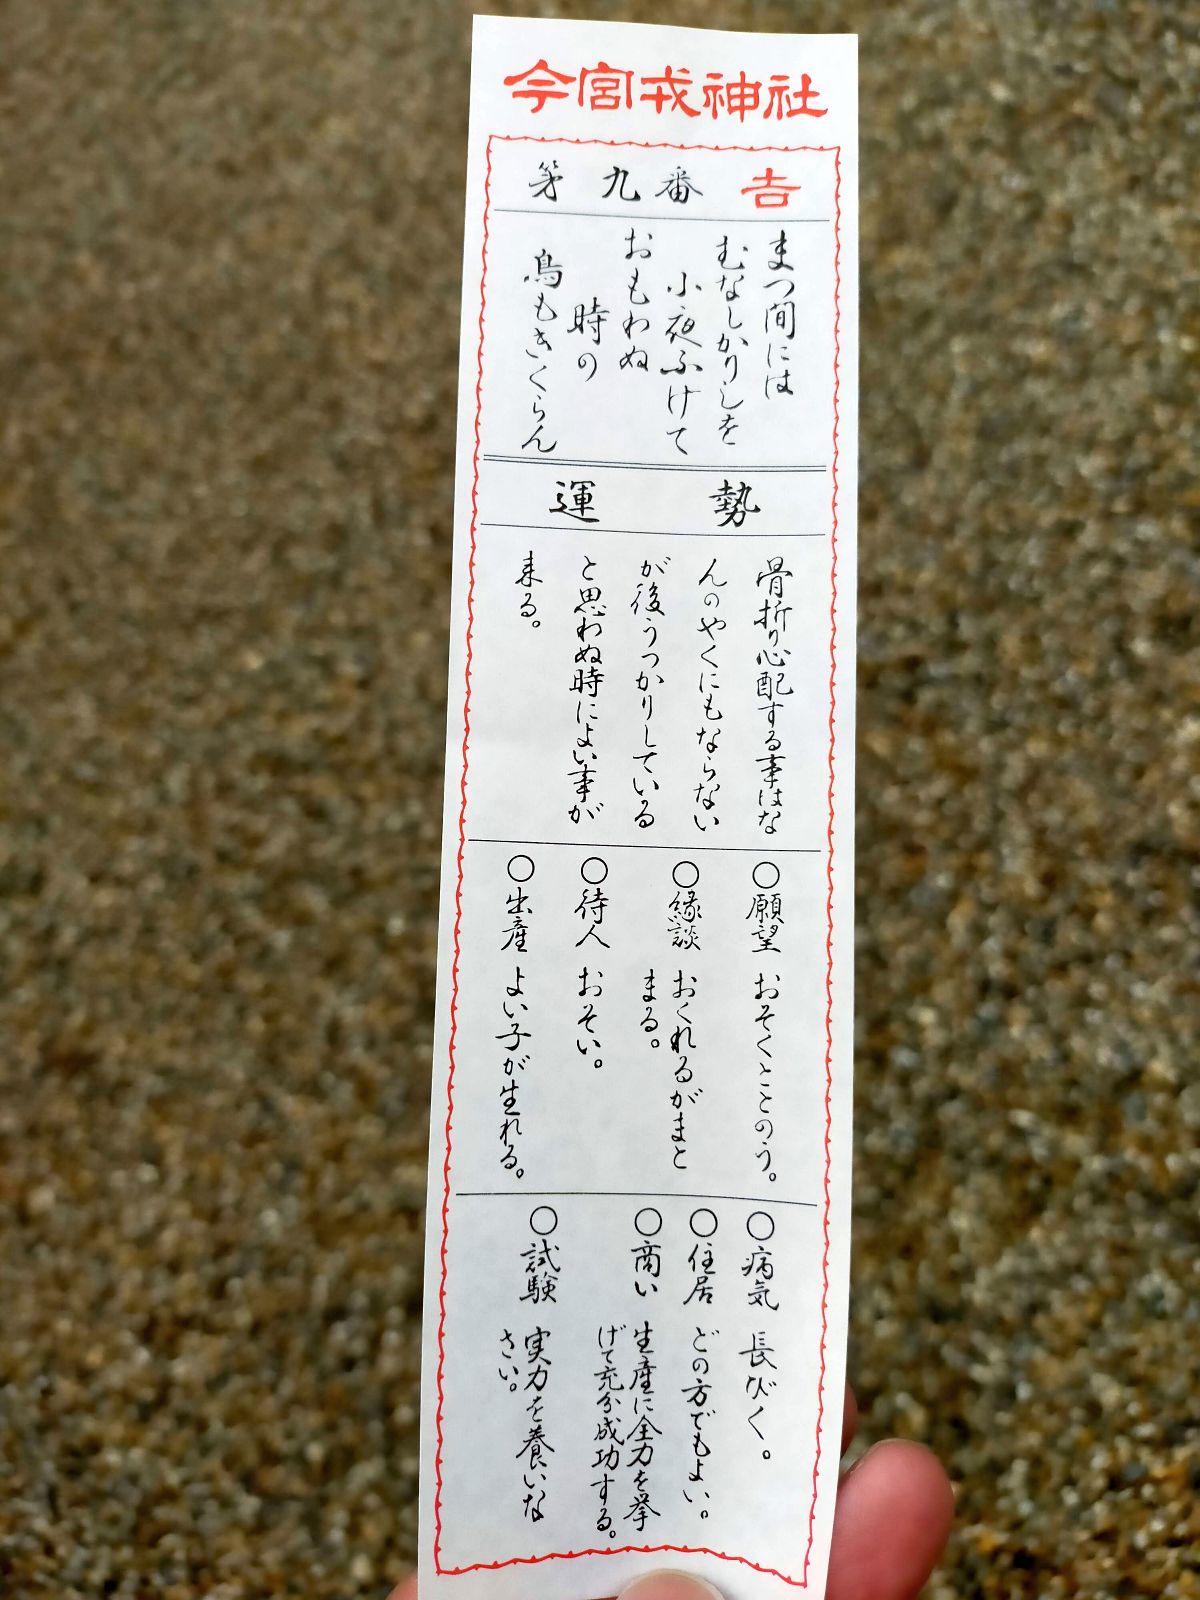 今宮戎神社
第九番 吉
まつ間には
むなしかりしを
小夜ふけて
おもわぬ
時の
鳥もきくらん
運勢
骨折り心配する事はな
んのやくにもならない
が後うっかりしている
と思わぬ時によい事が
来る。
○願望 おそくととのう。
○縁談 おくれるがまと
まる。
○待人 おそい。
○出産 よい子が生れる。
○病気 長びく。
○住居 どの方でもよい。
○商い 生産に全力を挙
げて充分成功する。
○試験 実力を養いな
さい。